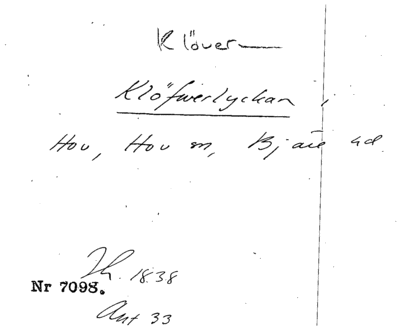 Klöver—
Klöfwerlyckan,
Hov, Hov sn, Bjäre hd
Jh. 1838
Nr 7098.
Ant 33